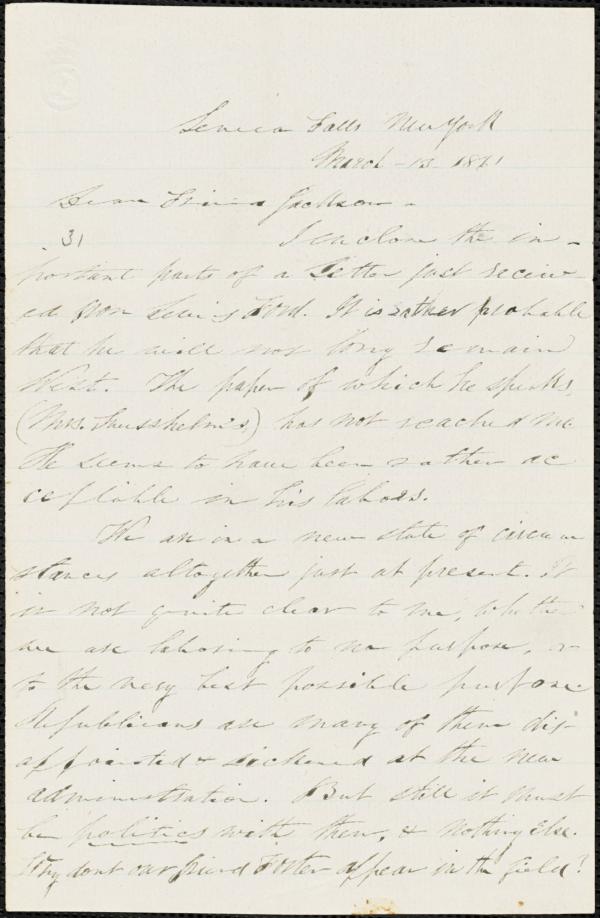 Seneca Falls New York
March - 13 - 1861
Dear Friend Jackson -
31 I enclose the in-
portant parts of a letter just receiv
ed from Lewis Ford. It is rather probable
that he will not long remain
West. The paper of which he speaks,
(Mrs. Swisshelm's,) has not reached me.
He seems to have been rather ac
ceptable in his labors.
We are in a new state of circum
stances altogether just at present. It
is not quite clear to me, whether
we are laboring to no purpose, or
to the very best possible purpose.
Republicans are many of them dis-
appointed & sickened at the new
administration. But still it must
be politics with them, & nothing else.
Why dont our friend Foster appear in the field?